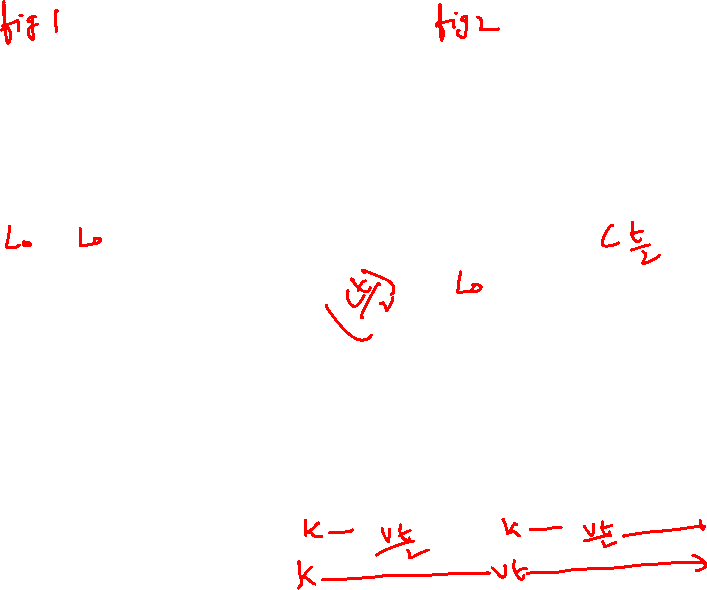 fig 1 fig 2
L₀ L₀ C t/2
ct/2 L₀
K — vt/2 K — vt/2 →
K — vt →